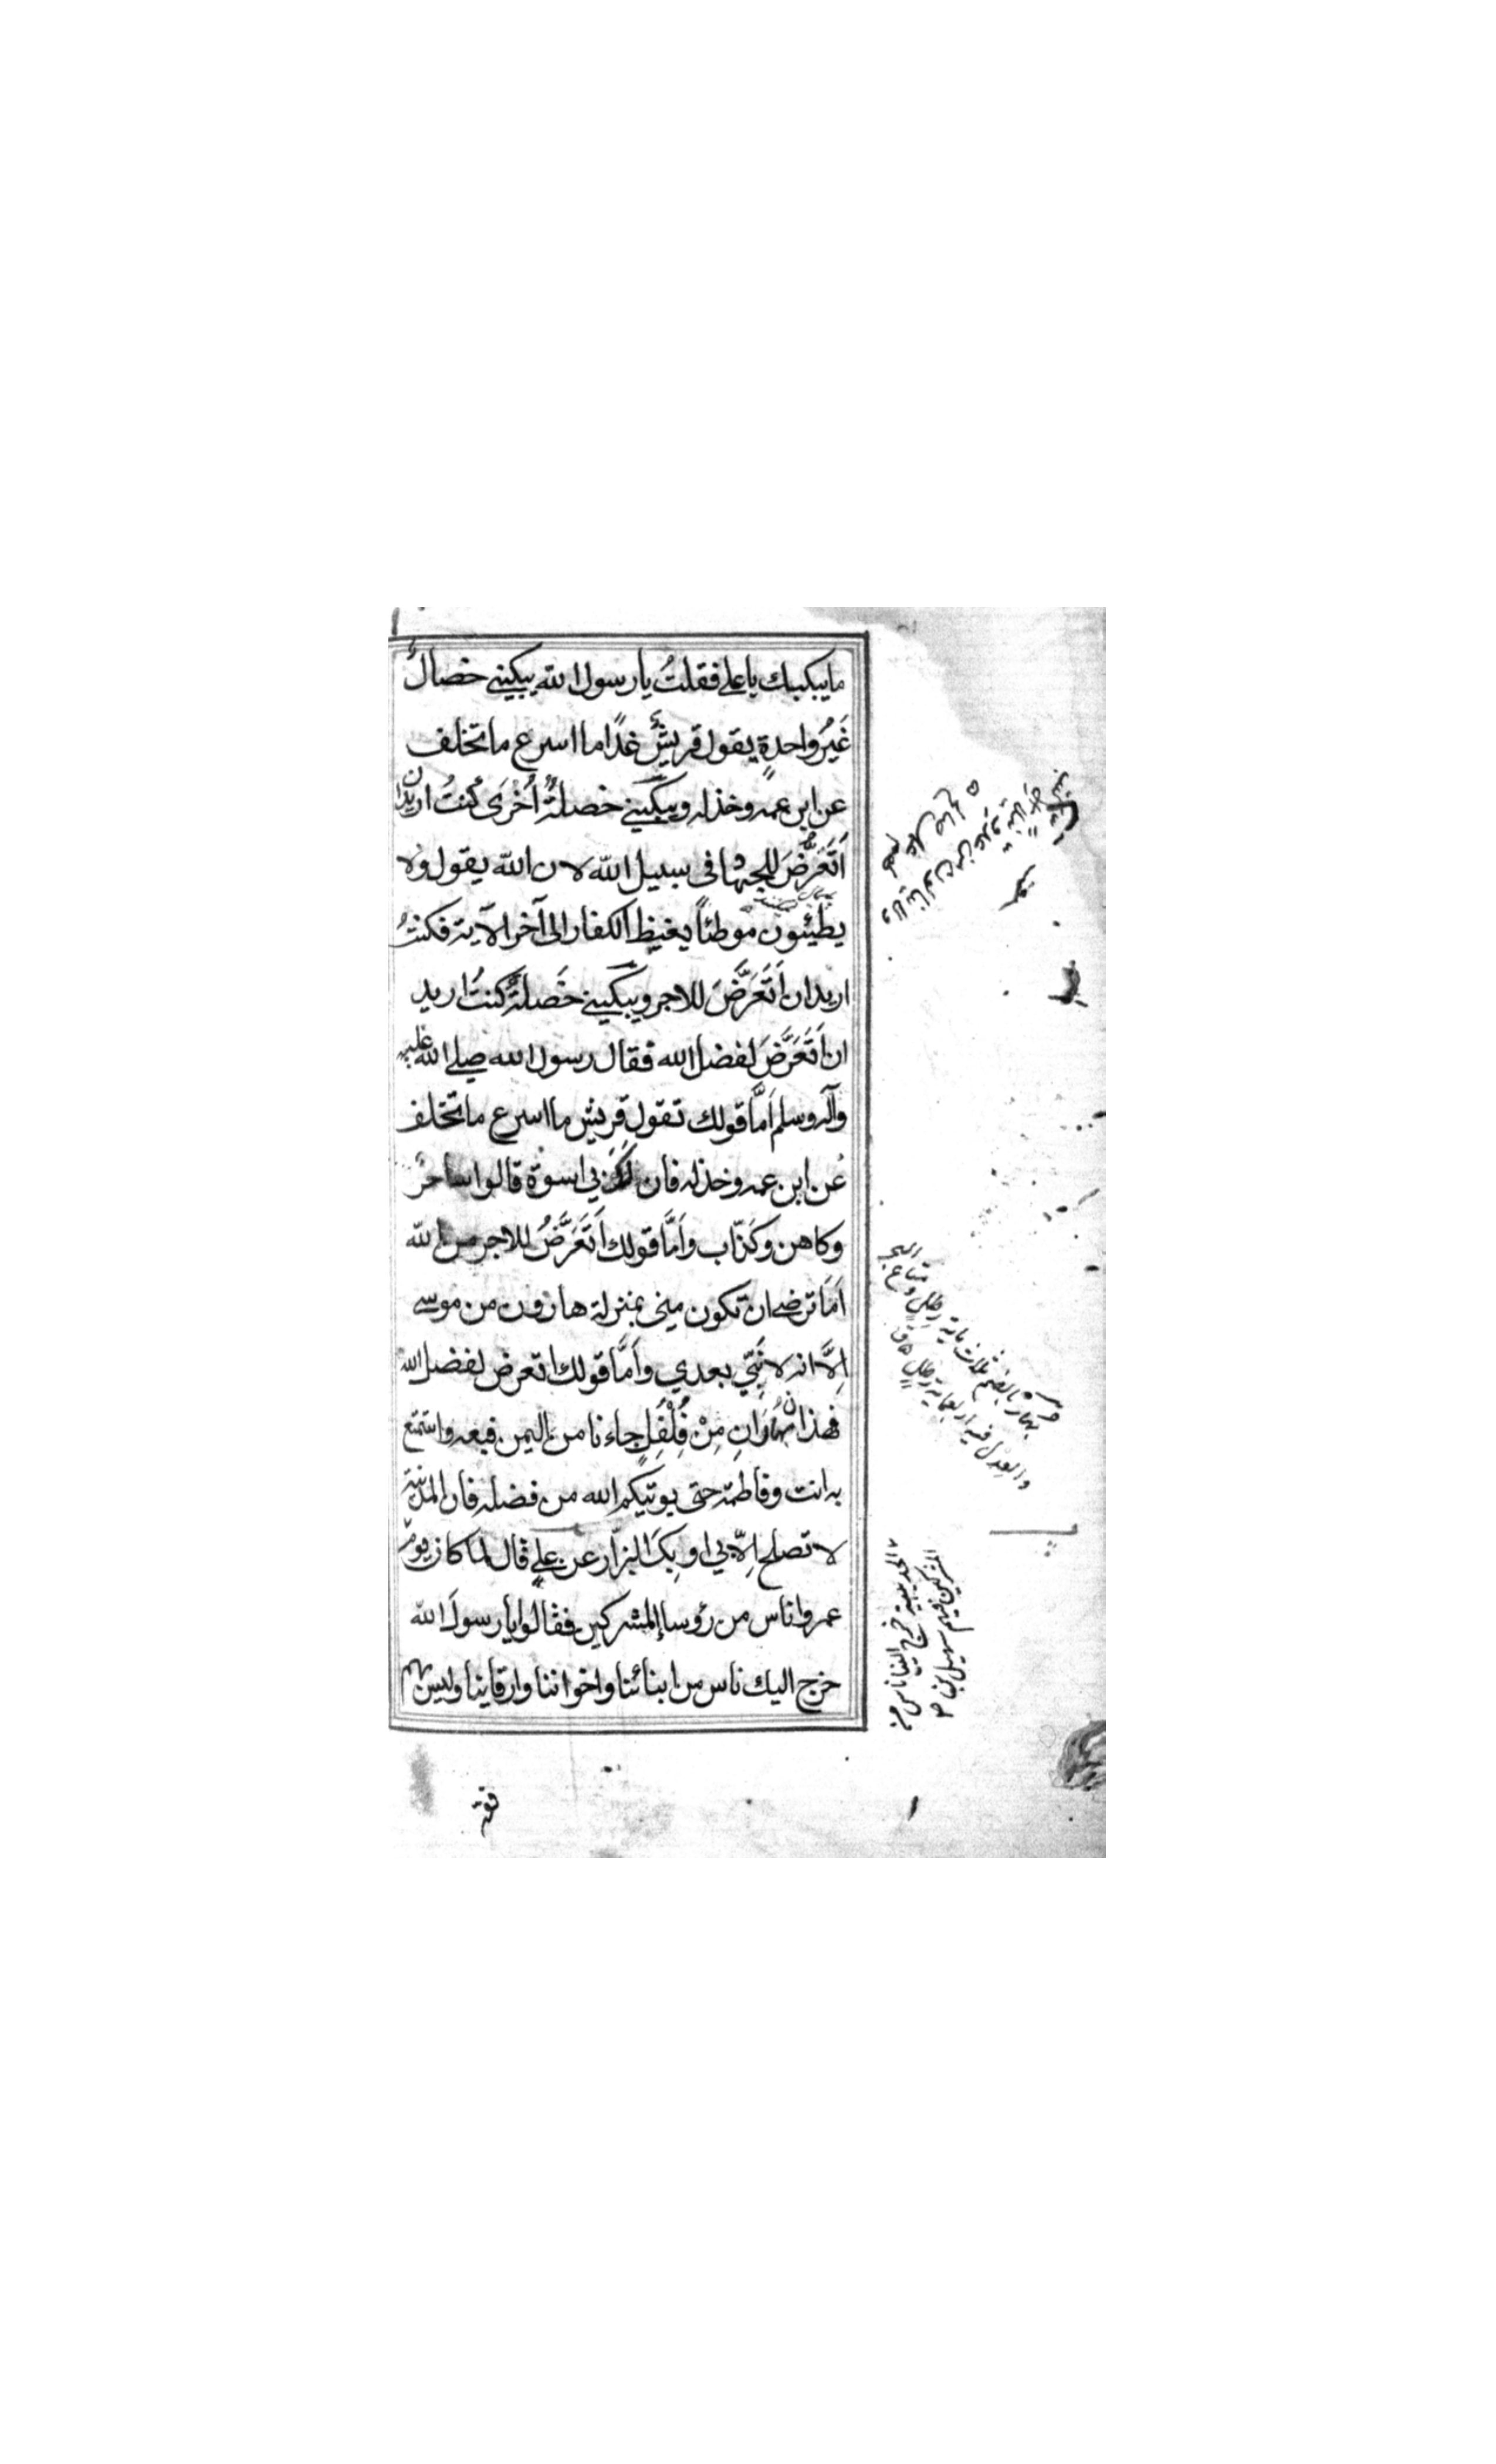 ما يبكيك يا علي فقلتُ يا رسول الله يبكيني خصالٌ
غَيرُ واحدةٍ يقول قريشٌ غدًا ما اسرع ما تخلف
عن ابن عمه وخذله ويبكيني خصلةٌ اُخْرَى كُنتُ اريد ان
اَتَعَرَّضَ للجهاد في سبيل الله لان الله يقول ولا
يطئون موطئاً يغيظ الكفار الى آخر الآية فكنتُ
اريد ان اَتَعَرَّضَ للاجر ويبكيني خَصلةٌ كنتُ اريد
ان اَتَعَرَّضَ لفضل الله فقال رسول الله صلى الله عليه
وآله وسلم اَمَّا قولك تقول قريش ما اسرع ما تخلف
عن ابن عمه وخذله فان لَكَ بي اسوة قالوا ساحرٌ
وكاهن وكَذّاب واَمَّا قولك اَتَعَرَّضُ للاجر من الله
اَمَا ترضى ان تكون مني بمنزلة هارون من موسى
اِلَّا انه لا نَبِيّ بعدي واَمَّا قولك اتعرض لفضل الله
فهذان بُهَارَانِ مِنْ فُلْفُلٍ جاءنا من اليمن فبعه واستمتع
به انت وفاطمة حتى يوتيكم الله من فضله فان المدينة
لا تصلح اِلّا بي او بِكَ البزّار عن عليٍ قال لما كان يوم
عمر واناس من رؤسا المشركين فقالوا يا رسولَ الله
خرج اليك ناس من ابنائنا واخواننا وارقاينا وليس بهم
بهار بالضم ثلاث ماية رطل
والعدل فيه اربعماية رطل
الحديبية خرج الينا ناس من
المشركين فيهم سهيل بن